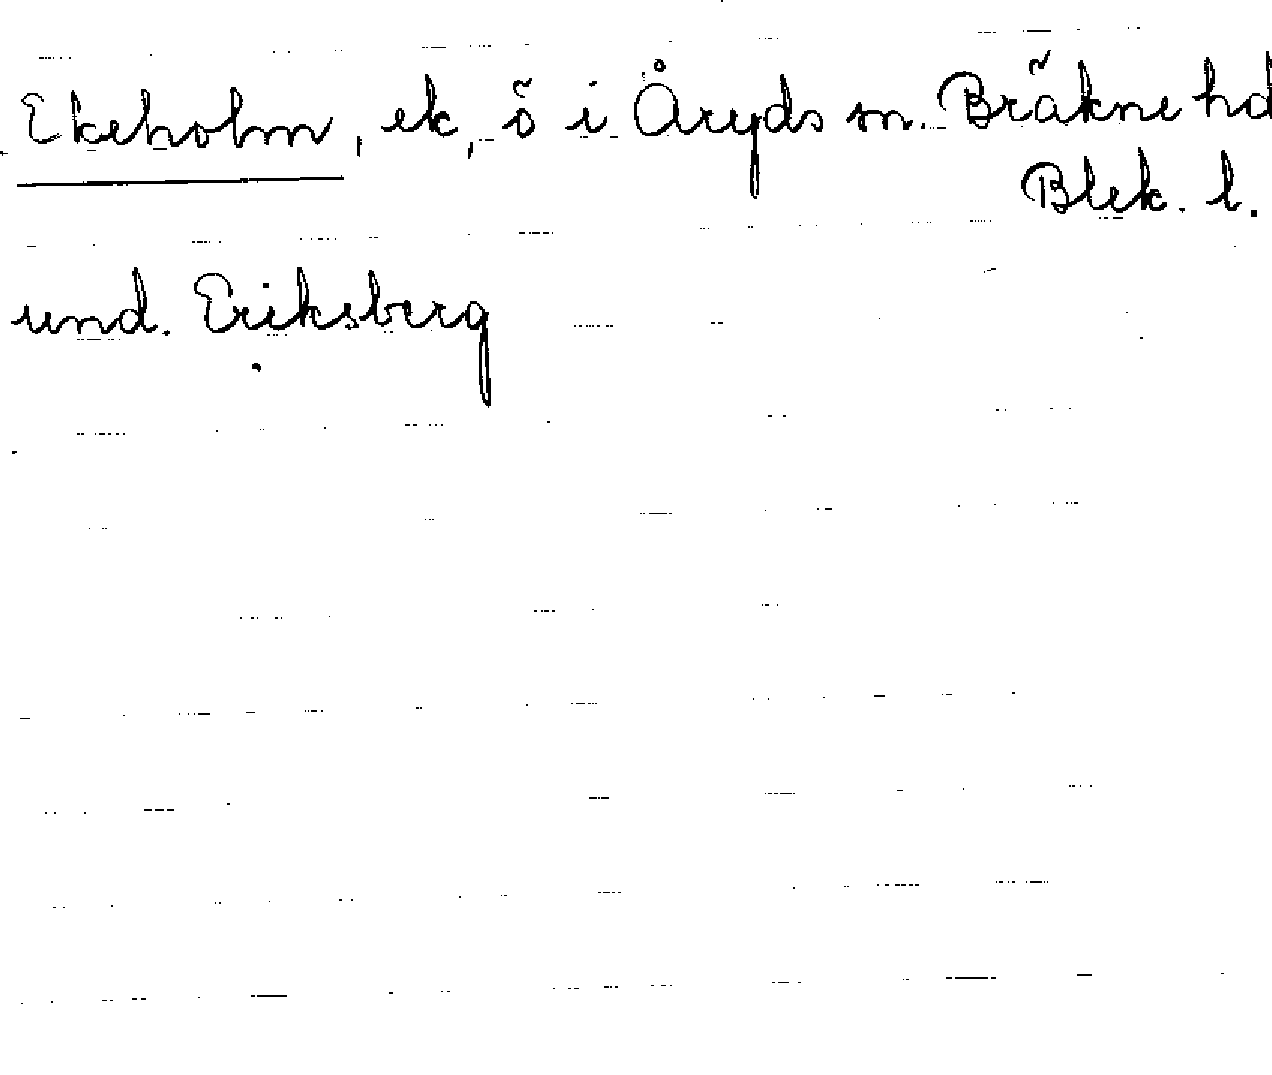 Ekeholm, ek, ö i Åryds sn. Bräkne hd
Blek. l.
und. Eriksberg